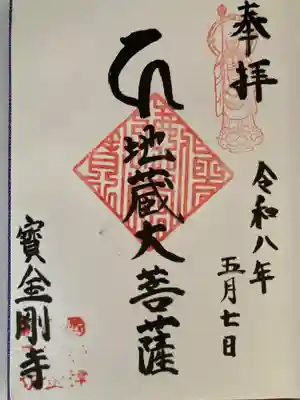 奉拝
令和八年
五月七日
地蔵大菩薩
寶金剛寺